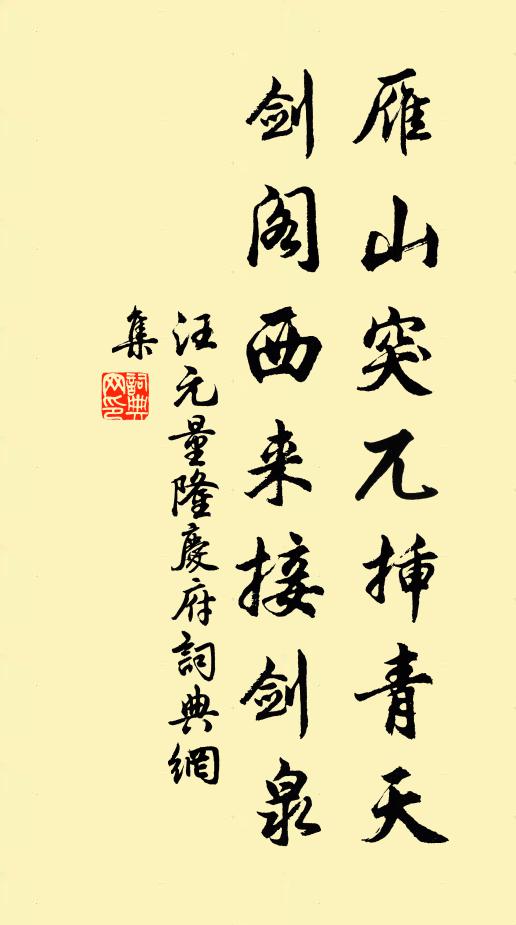 雁山突兀插青天
剑阁西来接剑泉
汪元量隆慶府詞典網
集
詞典
网印